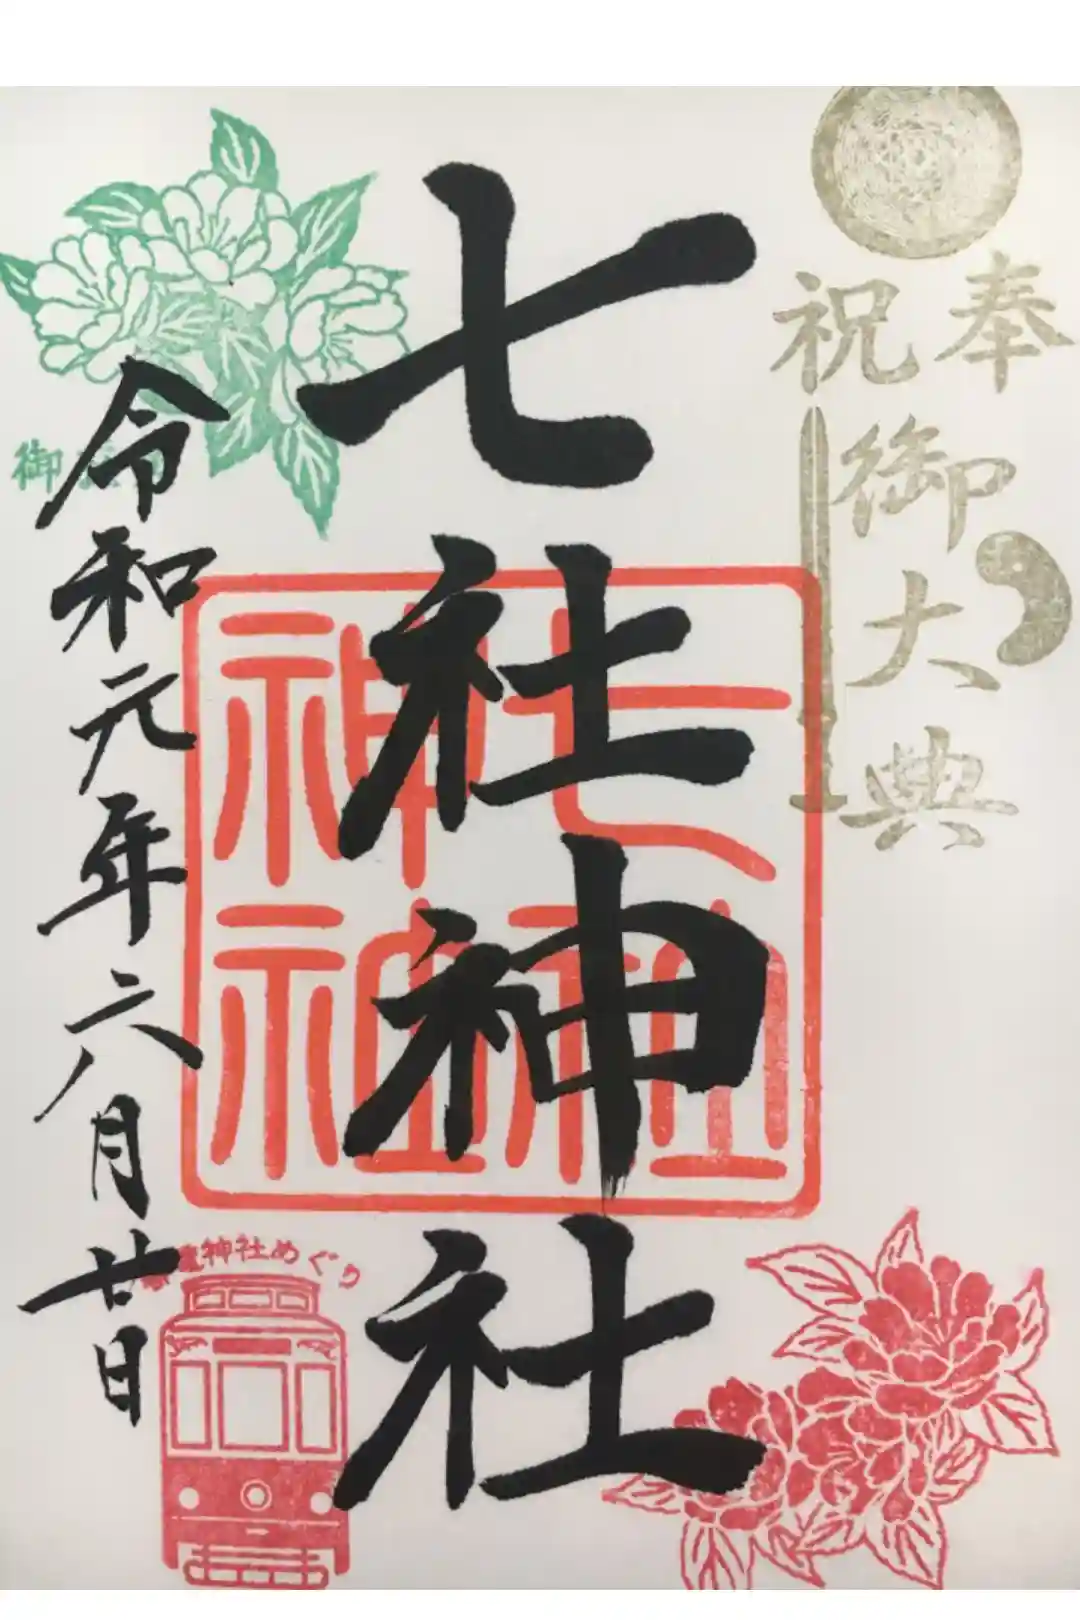 奉
祝
御大典
七社神社
七社神社
令和元年六月廿日
御
神社めぐり